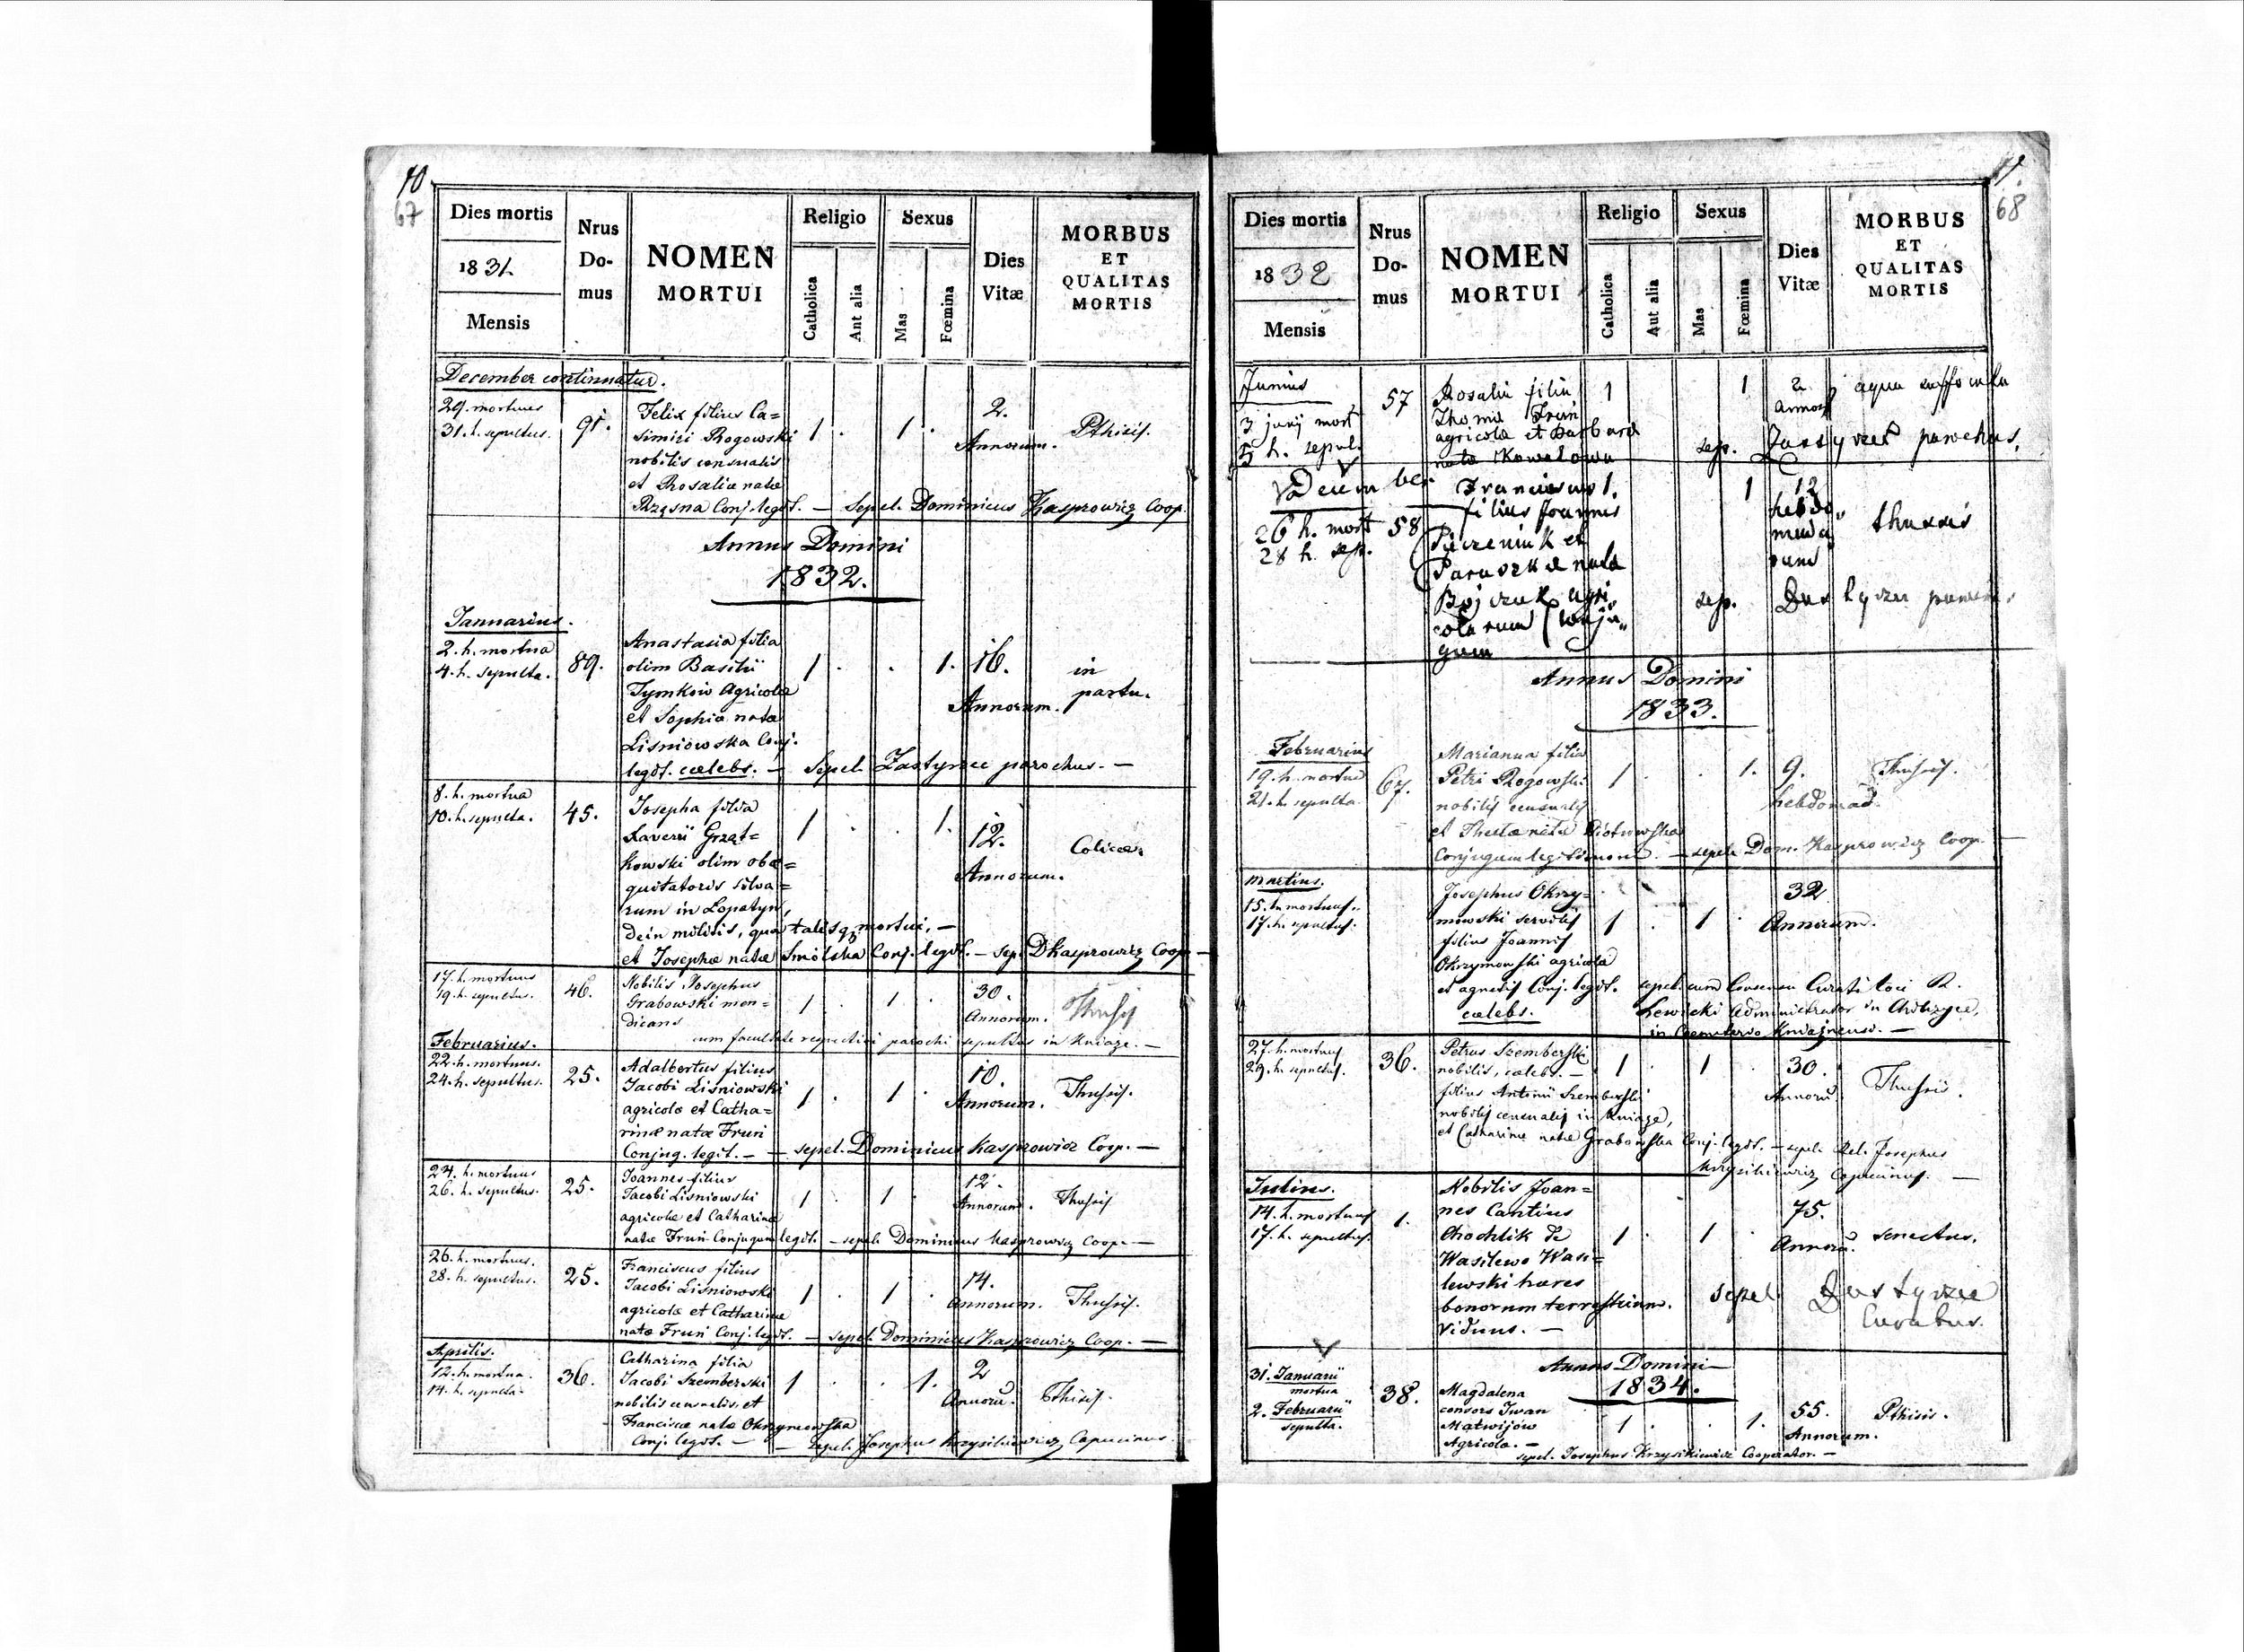 10
67
Dies mortis
1831.
Mensis
Nrus
Do-
mus
NOMEN
MORTUI
Religio
Catholica
Aut alia
Sexus
Mas
Fœmina
Dies
Vitæ
MORBUS
ET
QUALITAS
MORTIS
December continuatur.
29. mortuus
31. h. sepultus.
91.
Felix filius Ca=
simiri Rogowski
nobilis censualis
et Rosaliæ natæ
Rząsna Conj. legit. — Sepel. Dominicus Kasprowicz Coop.
1 . 1 .
2.
Annorum.
Pthisis.
Annus Domini
1832.
Januarius.
2. h. mortua
4. h. sepulta.
89.
Anastasia filia
olim Basilii
Tymków Agricolæ
et Sophiæ natæ
Lisniowska Conj.
legit. cælebs. — Sepel. Zastyrzec parochus. —
1 . . 1.
16.
Annorum.
in
partu.
8. h. mortua
10. h. sepulta.
45.
Josepha filia
Xaverii Grząt=
kowski olim obæ=
quitatoris silva=
rum in Lopatyn,
dein militis, qua talisq mortui, —
et Josephæ natæ Smólska Conj. legit. — sep. D Kasprowicz Coop —
1 . . 1.
12.
Annorum.
Colica.
17. h. mortuus
19. h. sepultus.
46.
Nobilis Josephus
Grabowski men=
dicans
1 . 1 .
30.
Annorum.
Thusis
cum facultate respectivi parochi sepultus in Kniaże. —
Februarius.
22. h. mortuus.
24. h. sepultus.
25.
Adalbertus filius
Jacobi Lisniowski
agricolæ et Catha=
rinæ natæ Fruń
Conjug. legit. — — sepel. Dominicus Kasprowicz Coop. —
1 . 1 .
10.
Annorum.
Thusis.
24. h. mortuus
26. h. sepultus.
25.
Joannes filius
Jacobi Lisniowski
agricolæ et Catharinæ
natæ Fruń Conjugum legit. — sepel. Dominicus Kasprowicz Coop. —
1 . 1 .
12.
Annorum.
Thusis
26. h. mortuus.
28. h. sepultus.
25.
Franciscus filius
Jacobi Lisniowski
agricolæ et Catharinæ
natæ Fruń Conj. legit. — sepel. Dominicus Kasprowicz Coop. —
1 . 1 .
14.
Annorum.
Thusis.
Aprilis.
12. h. mortua.
14. h. sepulta.
36.
Catharina filia
Jacobi Szemberski
nobilis censualis, et
Franciscæ natæ Okrzymowska
Conj. legit. — — sepel. Josephus Krzysikiewicz Capucinus.
1 . . 1.
2
Annorū.
Pthisis.
11.
68
Dies mortis
1832
Mensis
Nrus
Do-
mus
NOMEN
MORTUI
Religio
Catholica
Aut alia
Sexus
Mas
Fœmina
Dies
Vitæ
MORBUS
ET
QUALITAS
MORTIS
Junius
3 junij mort
5 h. sepul.
57
Rosalia filia
Thomæ Fruń
agricolæ et Barbara
nata Kowalowa
1 1
2
annor
aqua suffocata
sep. parochus.
26 h. mort
28 h. sep.
58
Franciscus
filius Joannis
et
nata
agri,
colarum (conju,,
gum
1. 1
12
hebdo,,
mada
rum
thussis
sep.
Annus Domini
1833.
Februarius
19. h. mortua
21. h. sepulta.
67.
Marianna filia
Petri Rogowski
nobilis censualis
et Theclæ natæ Piotrowska
Conjugum legitimorum. — sepel. Dom. Kasprowicz Coop. —
1 . . 1.
9.
hebdomad.
Thusis.
Martius.
15. h. mortuus.
17. h. sepultus.
Josephus Okrzy=
mowski servilis
filius Joannis
Okrzymowski agricolæ
et agnetis Conj. legit. sepel. cum Consensu Curati loci R.
cælebs. Lewicki Administrator in
in Coemeterio Kniażensi. —
1 . 1 .
32
Annorum.
27. h. mortuus
29. h. sepultus.
36.
Petrus Szemberski
nobilis, cælebs. —
filius Antonii Szemberski
nobilis censualis in Kniaże,
et Catharinæ natæ Grabowska Conj. legit. — sepel. Rel. Josephus
Krzysikiewicz Capucinus. —
1 . 1 .
30.
Annorū.
Thussis.
Julius.
14. h. mortuus
17. h. sepultus.
1.
Nobilis Joan=
nes Cantius
Chochlik de
Wasilewo Wasi=
lewski hæres
bonorum terrestrium.
Viduus. —
1 . 1 .
75.
Annorū.
senectus.
sepel.
Curatus.
Annus Domini
1834.
31. Januarii
mortua
2. Februarii
sepulta.
38.
Magdalena
consors Iwan
Matwijów
Agricola. —
sepel. Josephus Krzysikiewicz Cooperator. —
1 . . 1.
55.
Annorum.
Pthisis.